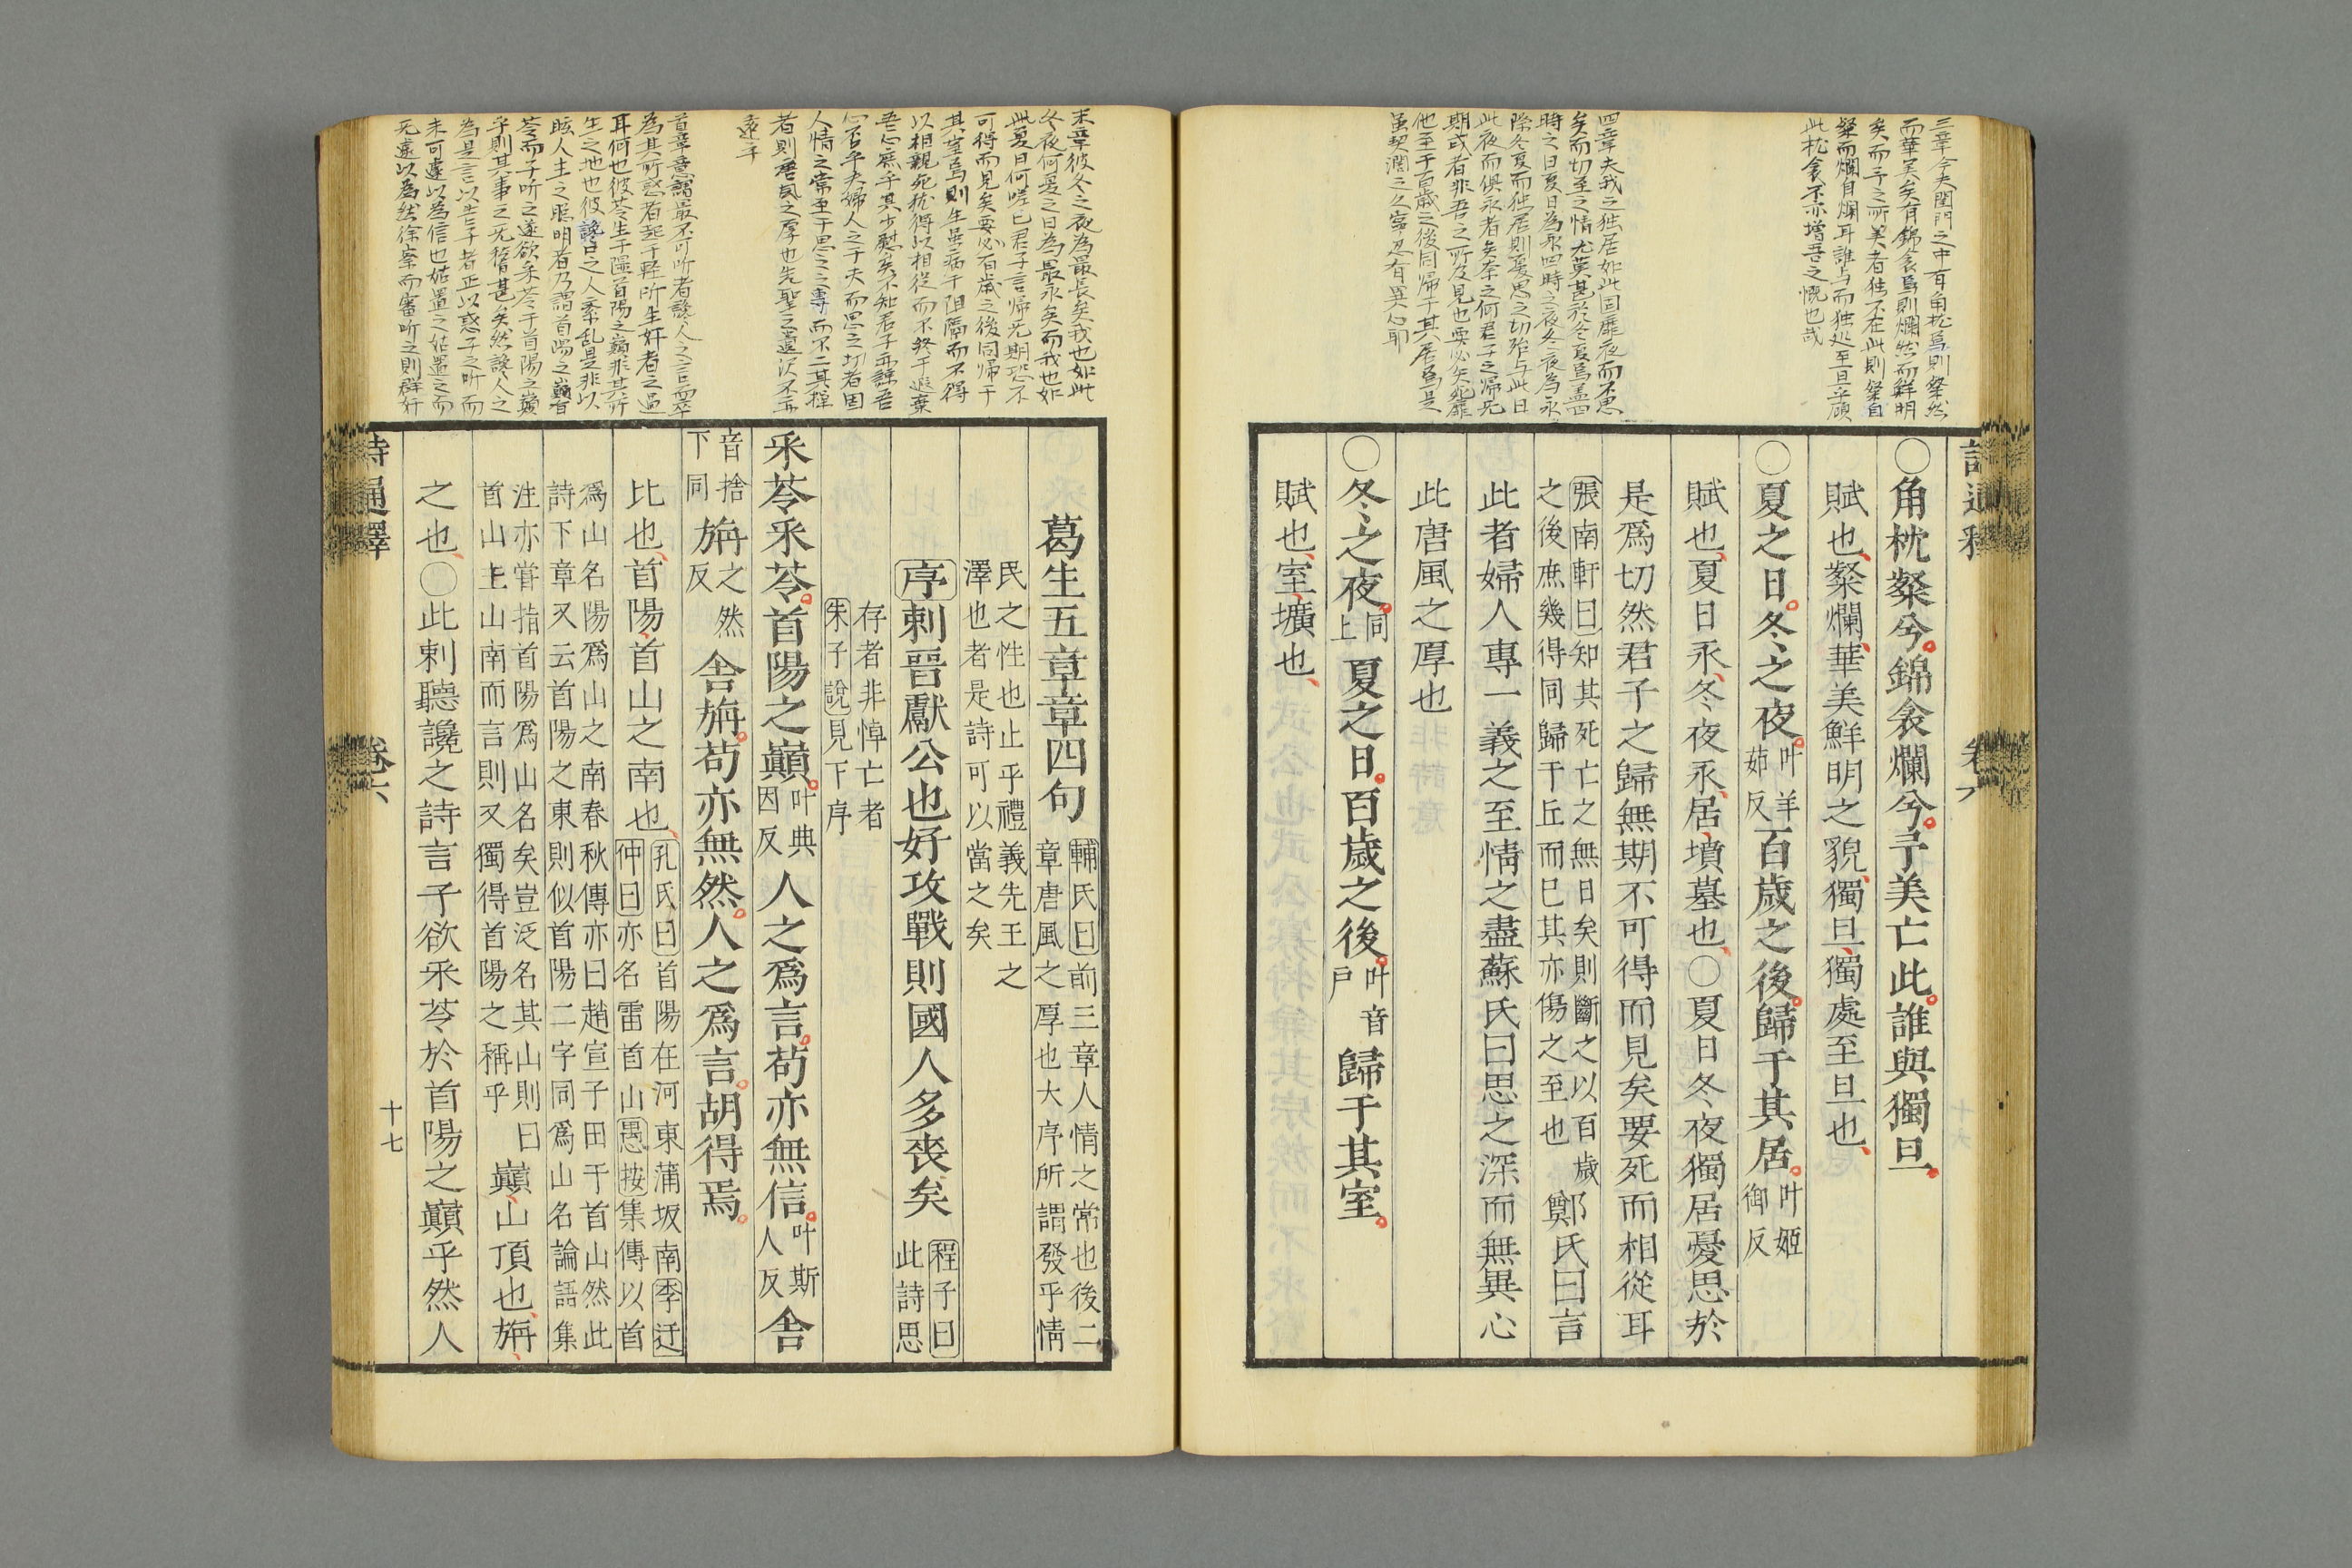 三章今夫閨門之中有角枕焉則粲然
而華美矣有錦衾焉則爛然而鮮明
矣而予之所美者独不在此則粲自
粲而爛自爛耳誰与而独処至旦乎顧
此枕衾不亦増吾之慨也哉
四章夫我之独居如此固靡夜而不思
矣而切至之情尤莫甚於冬夏焉盖四
時之日夏日為永四時之夜冬夜為永
際冬夏而独居則憂思之切殆与此日
此夜而倶永者矣奈之何君子之帰无
期或者非吾之所及見也要必矢死靡
他至于百歳之後同帰于其居焉是
虽契濶之久寧忍有異心耶
○角枕粲兮錦衾爛兮予美亡此誰與獨旦
賦也粲爛華美鮮明之貌獨旦獨處至旦也
○夏之日冬之夜叶羊茹反百歲之後歸于其居叶姬御反
賦也夏日永冬夜永居墳墓也○夏日冬夜獨居憂思於
是爲切然君子之歸無期不可得而見矣要死而相從耳
張南軒曰知其死亡之無日矣則斷之以百歲
之後庶幾得同歸于丘而已其亦傷之至也
鄭氏曰言
此者婦人專一義之至情之盡蘇氏曰思之深而無異心
此唐風之厚也
○冬之夜同上夏之日百歲之後叶音戶歸于其室
賦也室壙也
末章彼冬之夜為最長矣我也如此
冬夜何夏之日為最永矣而我也如
此夏日何嗟乎君子言帰无期恐不
可得而見矣要必百歳之後同帰于
其室焉則生虽病于阻濶而不得
以相親死猶得以相從而不終于遐棄
吾心庶乎其少慰矣不知君子亦諒吾
心否乎夫婦人之于夫而思之切者固
人情之常至于思之之專而不二其操
者則唐風之厚也先聖之遺沢不亦
遠乎
首章意謂最不可听者讒人之言而卒
為其所惑者起于軽听生奸者之過
耳何也彼苓生于隰首陽之巓非其所
生之地也彼讒口之人紊乱是非以
眩人主之聡明者乃謂首陽之巓有
苓而子听之遂欲采苓于首陽之巓
乎則其事之无稽甚矣然讒人之
為是言以告子者正以惑子之听而
未可遽以為信也姑置之姑置之而
无遽以為然徐察而審听之則群奸
葛生五章章四句
輔氏曰前三章人情之常也後二
章唐風之厚也大序所謂發乎情
民之性也止乎禮義先王之
澤也者是詩可以當之矣
序刺晉獻公也好攻戰則國人多喪矣
程子曰
此詩思
存者非悼亡者
朱子說見下序
采苓采苓首陽之巔叶典因反人之爲言苟亦無信叶斯人反舍
音捨下同旃之然反舍旃苟亦無然人之爲言胡得焉
比也首陽首山之南也
孔氏曰首陽在河東蒲坂南季迂
仲曰亦名雷首山愚按集傳以首
爲山名陽爲山之南春秋傳亦曰趙宣子田于首山然此
詩下章又云首陽之東則似首陽二字同爲山名論語集
注亦嘗指首陽爲山名矣豈泛名其山則曰
首山主山南而言則又獨得首陽之稱乎
巔山頂也旃
之也○此刺聽讒之詩言子欲采苓於首陽之巔乎然人
詩通釋
卷六
十七